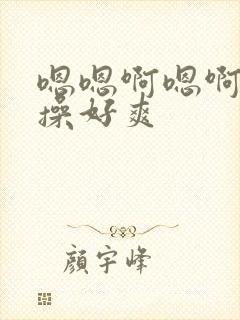 嗯嗯啊嗯啊
操好爽
颜宇峰